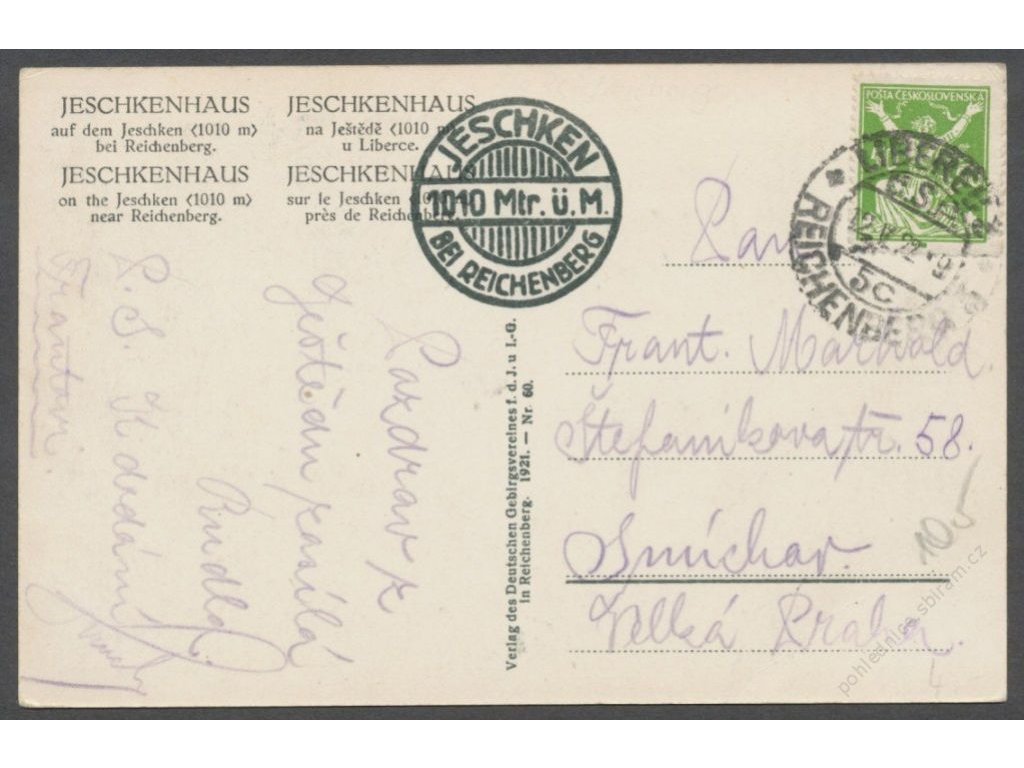 JESCHKENHAUS
auf dem Jeschken <1010 m>
bei Reichenberg.
JESCHKENHAUS
na Ještědě <1010 m
u Liberce.
JESCHKENHAUS
on the Jeschken <1010 m>
near Reichenberg.
JESCHKENHAUS
sur le Jeschken <1010 m>
près de Reichenberg.
JESCHKEN
1010 Mtr. ü. M.
BEI REICHENBERG
POŠTA ČESKOSLOVENSKÁ
LIBEREC
5c
REICHENBERG
Pozdrav z
Ještědu zasílá
Rudla.
P.S. K
Frantov
Verlag des Deutschen Gebirgsvereines f. d. J. u I.-G.
in Reichenberg. 1921. — Nr. 60.
Pan
Frant.
Štefanikova tř. 58.
Smíchov.
Velká Praha.
10,-
pohlednice.sbiram.cz